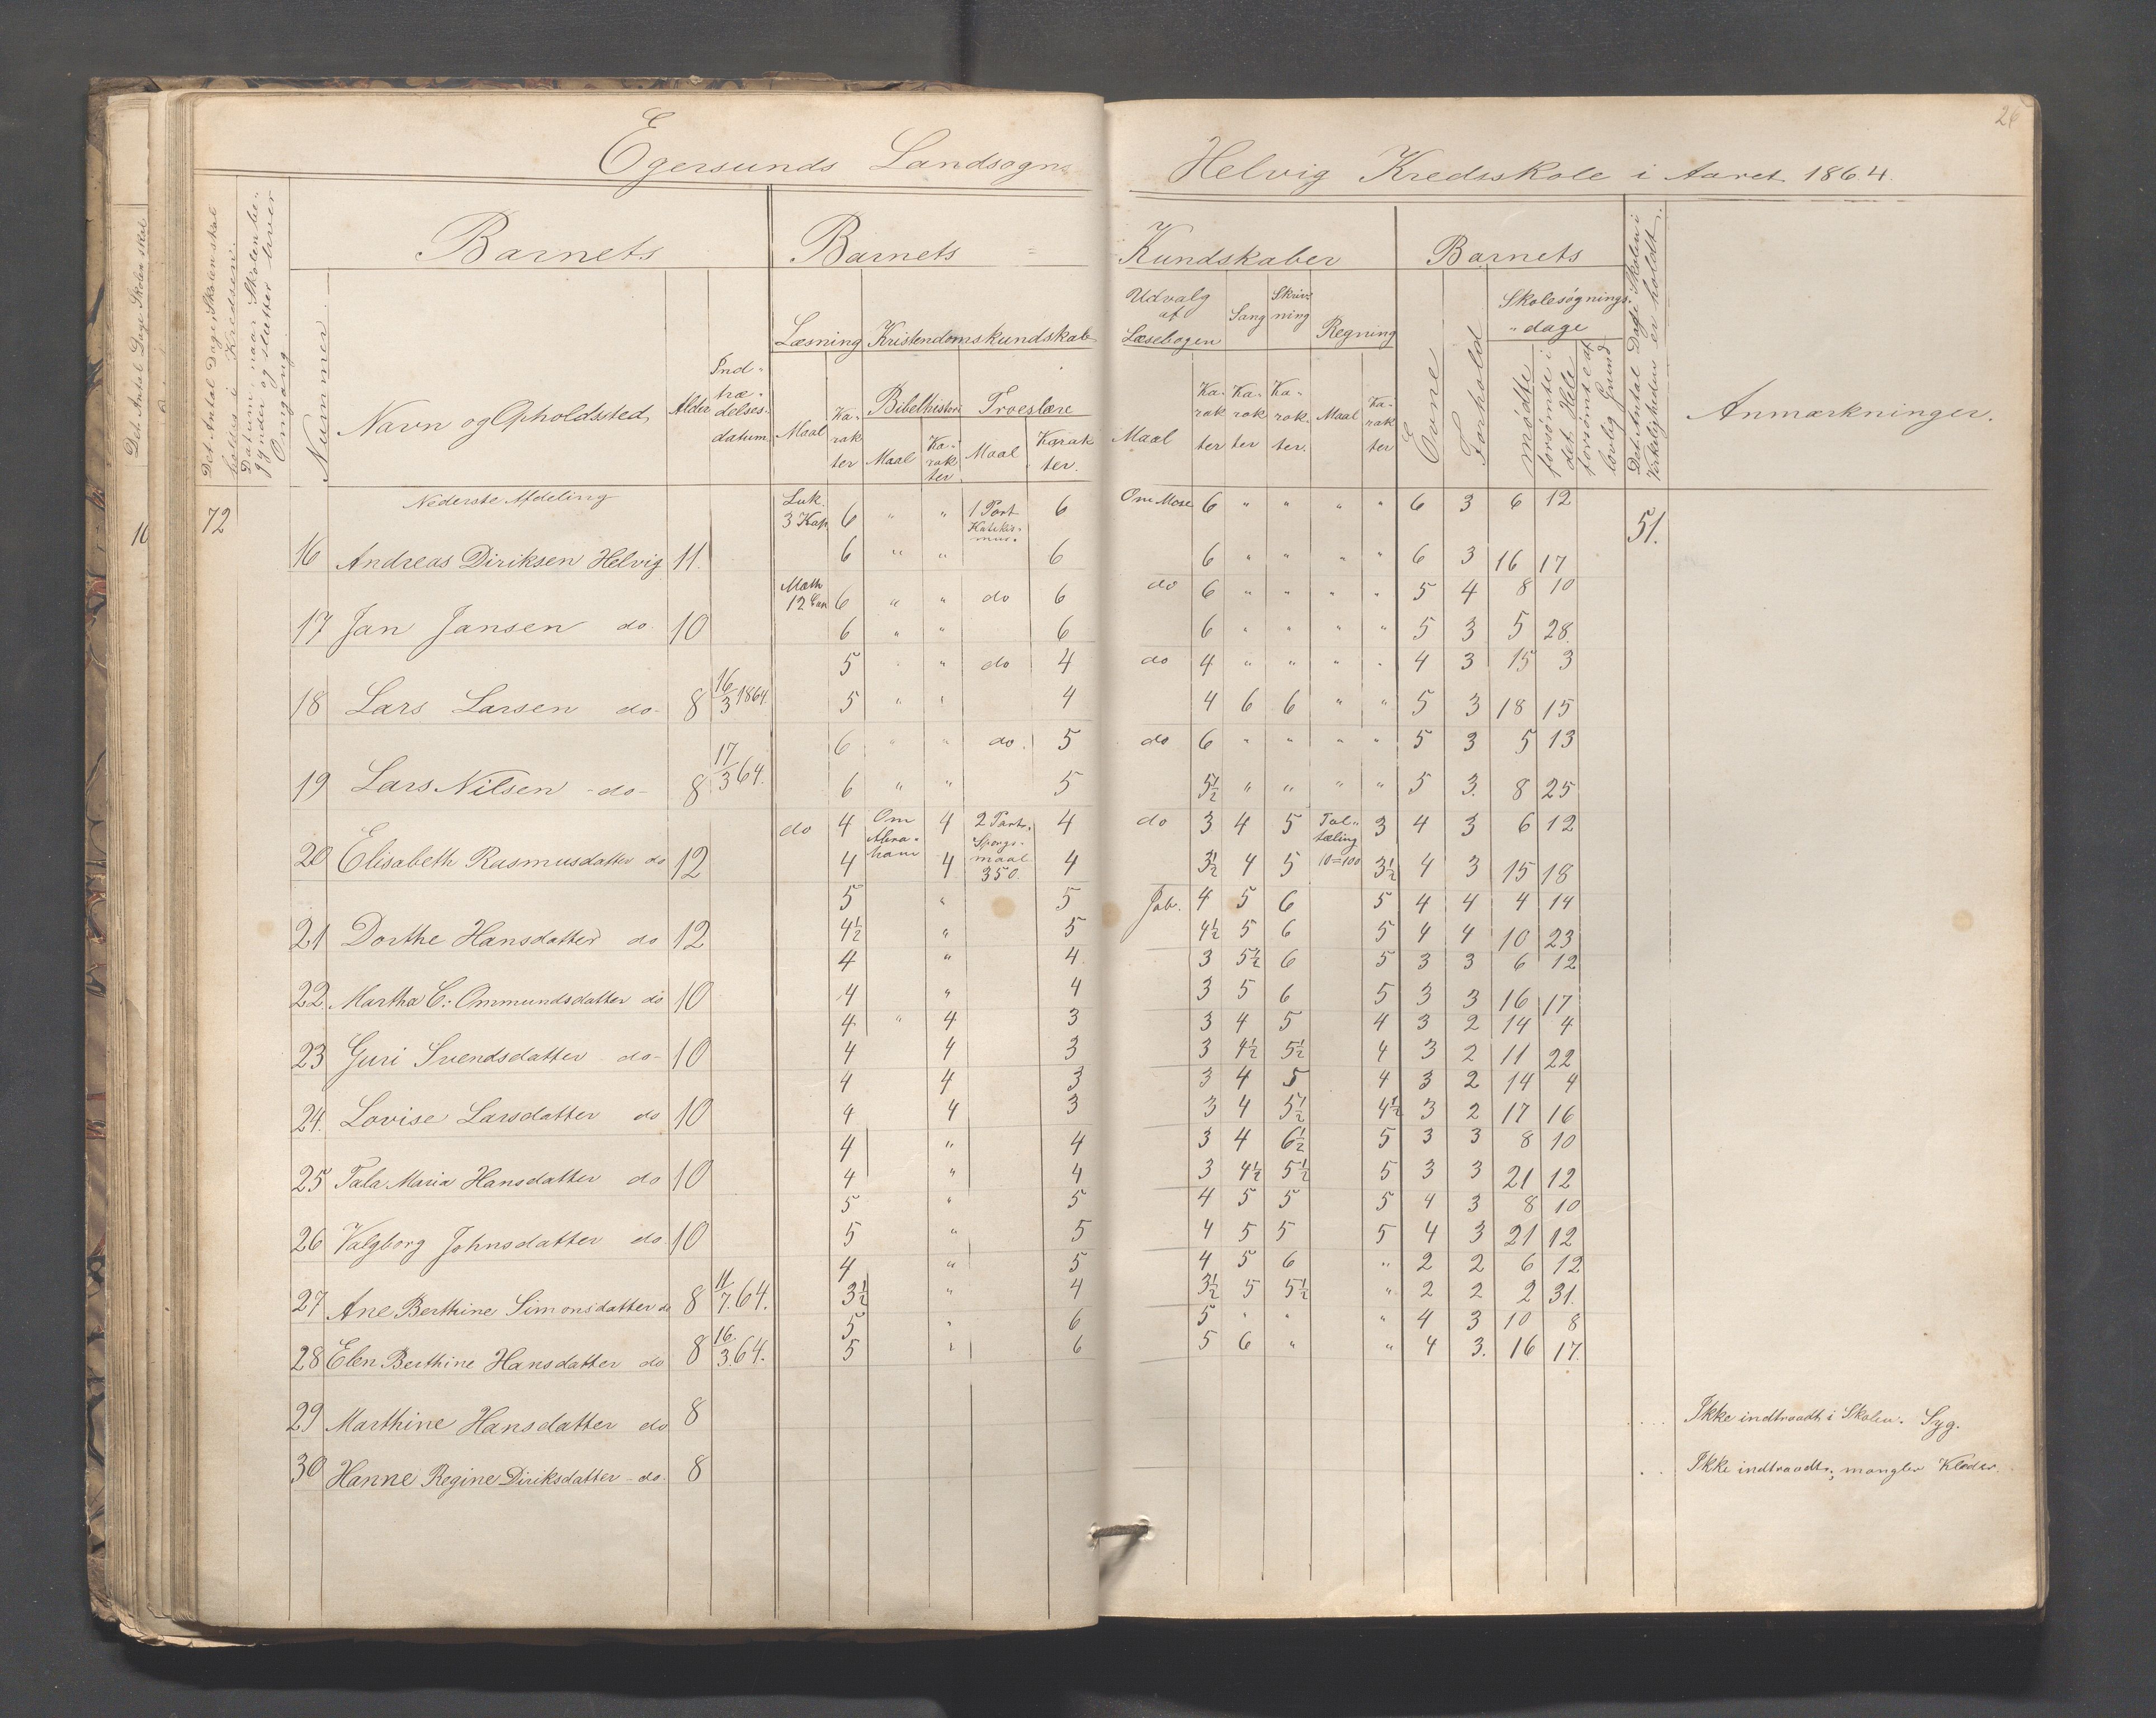 26
Egersunds Landsogns Helvig Kredsskole i Aaret 1864.
Det Antal Dage Skolen skal
Det Antal Dage Skolen skal holdes i Kredsen
Datum, naar Skolen begynder og slutter hver Omgang
Nummer
Barnets
Navn og Opholdsted
Alder
Indtrædelsesdatum
Barnets Kundskaber
Læsning
Kristendomskundskab
Bibelhistorie
Troeslære
Maal Karakter Maal Karakter Maal Karakter
Udvalg af Læsebogen
Sang
Skrivning
Regning
Maal Karakter Karakter Karakter Maal Karakter
Barnets
Evne
Forhold
Skolesøgningsdage
mødte
forsømte i det Hele
forsømte af lovlig Grund
Det Antal Dage Skolen i Virkeligheden er holdt
Anmærkninger.
10 72 Nederste Afdeling Luk. 3 Kap. 6 " " 1 Part Katekismus 6 Om Mose 6 " " " " 6 3 6 12 51.
16 Andreas Diriksen Helvig 11. 6 " " 6 6 " " " " 6 3 16 17
Math 12 Cap 6 " " do 6 do 6 " " " " 5 4 8 10
17 Jan Jansen do 10 6 " " 6 6 " " " " 5 3 5 28
5 " " do 4 do 4 " " " " 4 3 15 3
18 Lars Larsen do 8 16/3 1864. 5 " " 4 4 6 6 " " 5 3 18 15
6 " " do. 5 do 6 " " " " 5 3 5 13
19 Lars Nilsen do 8 17/3 64. 6 " " 5 5½ " " " " 5 3. 8 25
do 4 Om Abraham 4 2 Parts. Spørgsmaal 350 4 do 3 4 5 Taltæling 10=100 3 4 3 6 12
20 Elisabeth Rasmusdatter do 12 4 4 4 3½ 4 5 3½ 4 3 15 18
5 " 5 Job. 4 5 6 5 4 4 4 14
21 Dorthe Hansdatter do 12 4½ " 5 4½ 5 6 5 4 4 10 23
4 " 4 3 5½ 6 5 3 3 6 12
22. Martha C: Ommundsdatter do 10 4 " 4 3 5 6 5 3 3 16 17
4 " 4 3 3 4 5 4 3 2 14 4
23 Guri Svendsdatter do 10 4 4 3 3 4½ 5½ 4 3 2 11 22
4 4 3 3 4 5 4 3 2 14 4
24. Lovise Larsdatter do 10 4 4 3 3 4 5½ 4½ 3 2 17 16
4 " 4 3 4 6½ 5 3 3 8 10
25 Tala Maria Hansdatter do 10 4 " 4 3 4½ 5½ 5 3 3 21 12
5 " 5 4 5 5 5 4 3 8 10
26 Valgborg Johnsdatter do 10 5 " 5 4 5 5 5 4 3 21 12
4 " 5 4 5 6 " 2 2 6 12
27 Ane Berthine Simonsdatter do 8 11/7. 64. 3½ " 4 3½ 5 5½ " 2 2 2 31.
5 " 6 5 " " " 4 3 10 8
28 Elen Berthine Hansdatter do 8 16/3. 64. 5 " 6 5 6 " " 4 3. 16 17.
29 Marthine Hansdatter do 8 Ikke indtraadt i Skolen. Syg.
30 Hanne Regine Diriksdatter do. 8 Ikke indtraadt, mangler Klæder.